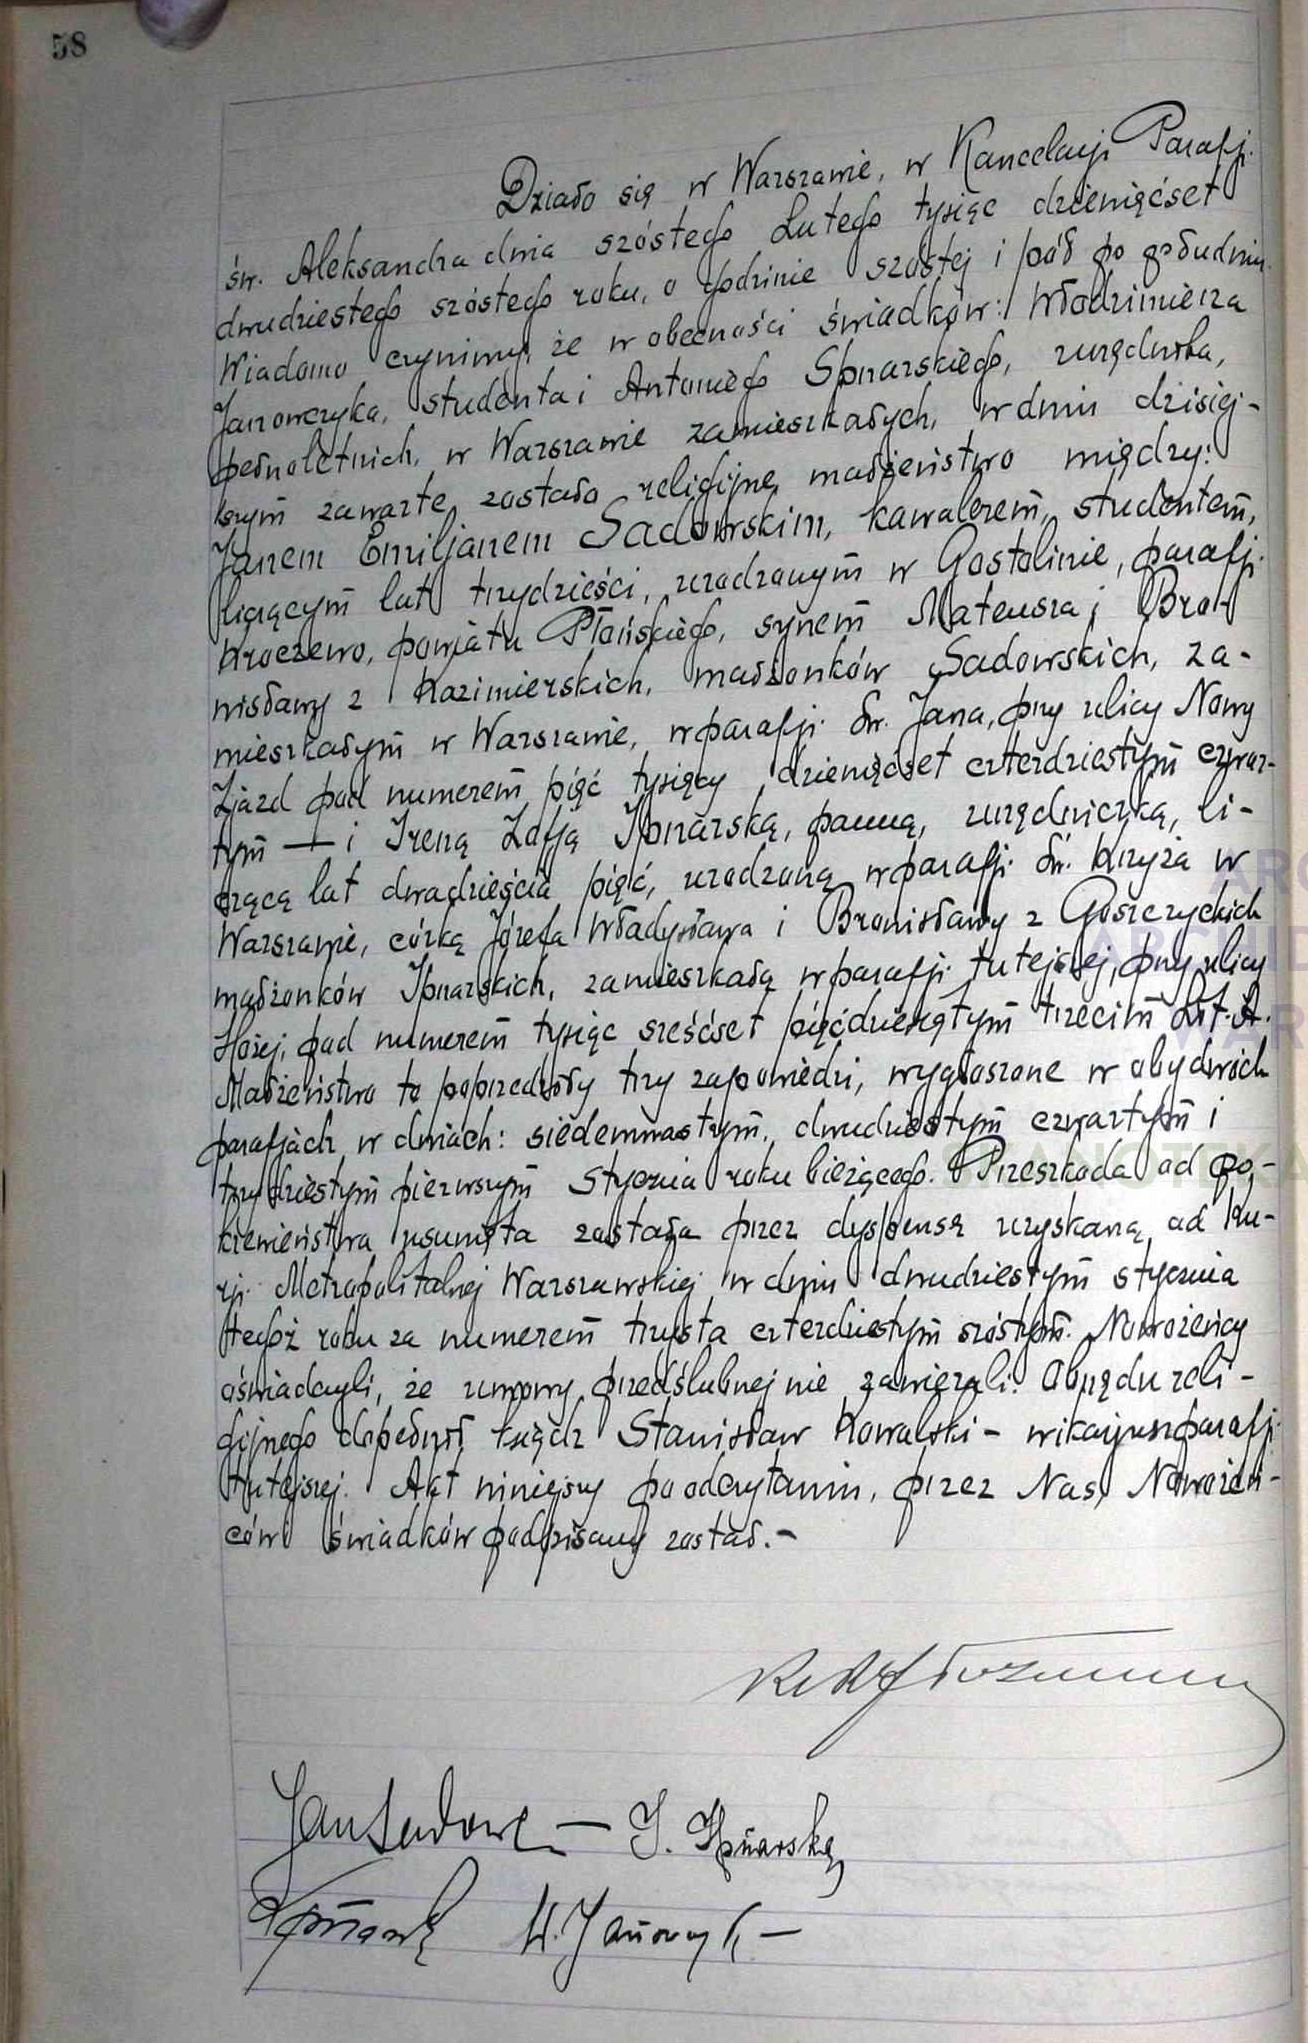 58
Działo się w Warszawie, w Kancelarji Parafji
św. Aleksandra dnia szóstego Lutego tysiąc dziewięćset
dwudziestego szóstego roku, o godzinie szóstej i pół po południu.
Wiadomo czynimy, że w obecności świadków: Włodzimierza
Janowczyka, studenta i Antoniego Spnarskiego, urzędnika,
pełnoletnich, w Warszawie zamieszkałych, w dniu dzisiej-
szym zawarte zostało religijne małżeństwo między:
Janem Emiljanem Sadowskim, kawalerem, studentem,
liczącym lat trzydzieści, urodzonym w Gostolinie, parafji
Kroczewo, powiatu Płońskiego, synem Mateusza i Bro-
nisławy z Kazimierskich, małżonków Sadowskich, za-
mieszkałym w Warszawie, w parafji Św. Jana, przy ulicy Nowy
Zjazd pod numerem pięć tysięcy dziewięćset czterdziestym czwar-
tym — i Ireną Zofją Spnarską, panną, urzędniczką, li-
czącą lat dwadzieścia pięć, urodzoną w parafji Św. Krzyża w
Warszawie, córką Józefa Władysława i Bronisławy z Goszczyckich
małżonków Spnarskich, zamieszkałą w parafji tutejszej, przy ulicy
Hożej, pod numerem tysiąc sześćset pięćdziesiątym trzecim Lit. A.
Małżeństwo to poprzedziły trzy zapowiedzi, wygłoszone w obydwóch
parafjach w dniach: siedemnastym, dwudziestym czwartym i
trzydziestym pierwszym Stycznia roku bieżącego. Przeszkoda od po-
krewieństwa usunięta została przez dyspensę uzyskaną od Ku-
rji Metropolitalnej Warszawskiej w dniu dwudziestym stycznia
tegoż roku za numerem trzysta czterdziestym szóstym. Nowożeńcy
oświadczyli, że umowy przedślubnej nie zawierali. Obrzędu reli-
gijnego dopełnił ksiądz Stanisław Kowalski – wikarjusz parafji
tutejszej. Akt niniejszy po odczytaniu, przez Nas, Nowożeń-
ców i świadków podpisany został. –
Jan Sadowski — I. Spnarska
W. Janowczyk —